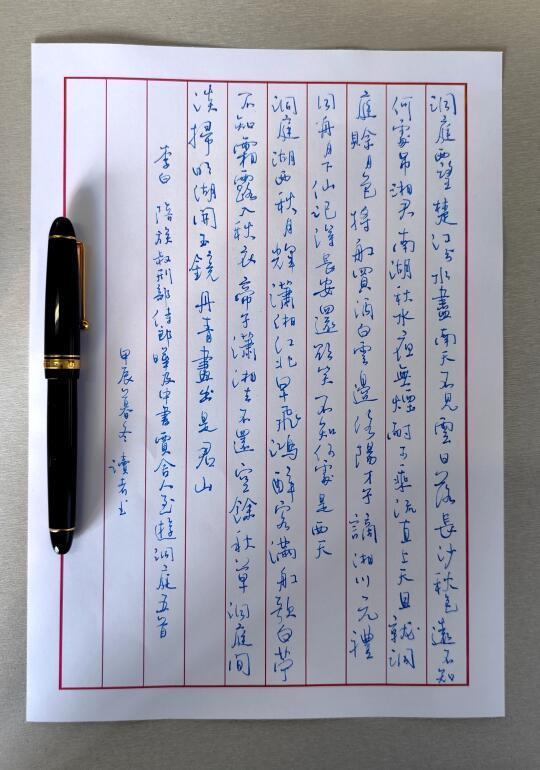 洞庭西望楚江分水盡南天不見雲日落長沙秋色遠不知
何處吊湘君南湖秋水夜無煙耐可乘流直上天且就洞
庭賒月色將船買酒白雲邊洛陽才子謫湘川元禮
同舟月下仙記得長安還欲笑不知何處是西天
洞庭湖西秋月輝瀟湘江北早飛鴻醉客滿船歌白苧
不知霜露入秋衣帝子瀟湘去不還空餘秋草洞庭間
淡掃明湖開玉鏡丹青畫出是君山
李白 陪族叔刑部侍郎曄及中書賈舍人至遊洞庭五首
甲辰暮冬 讀者書